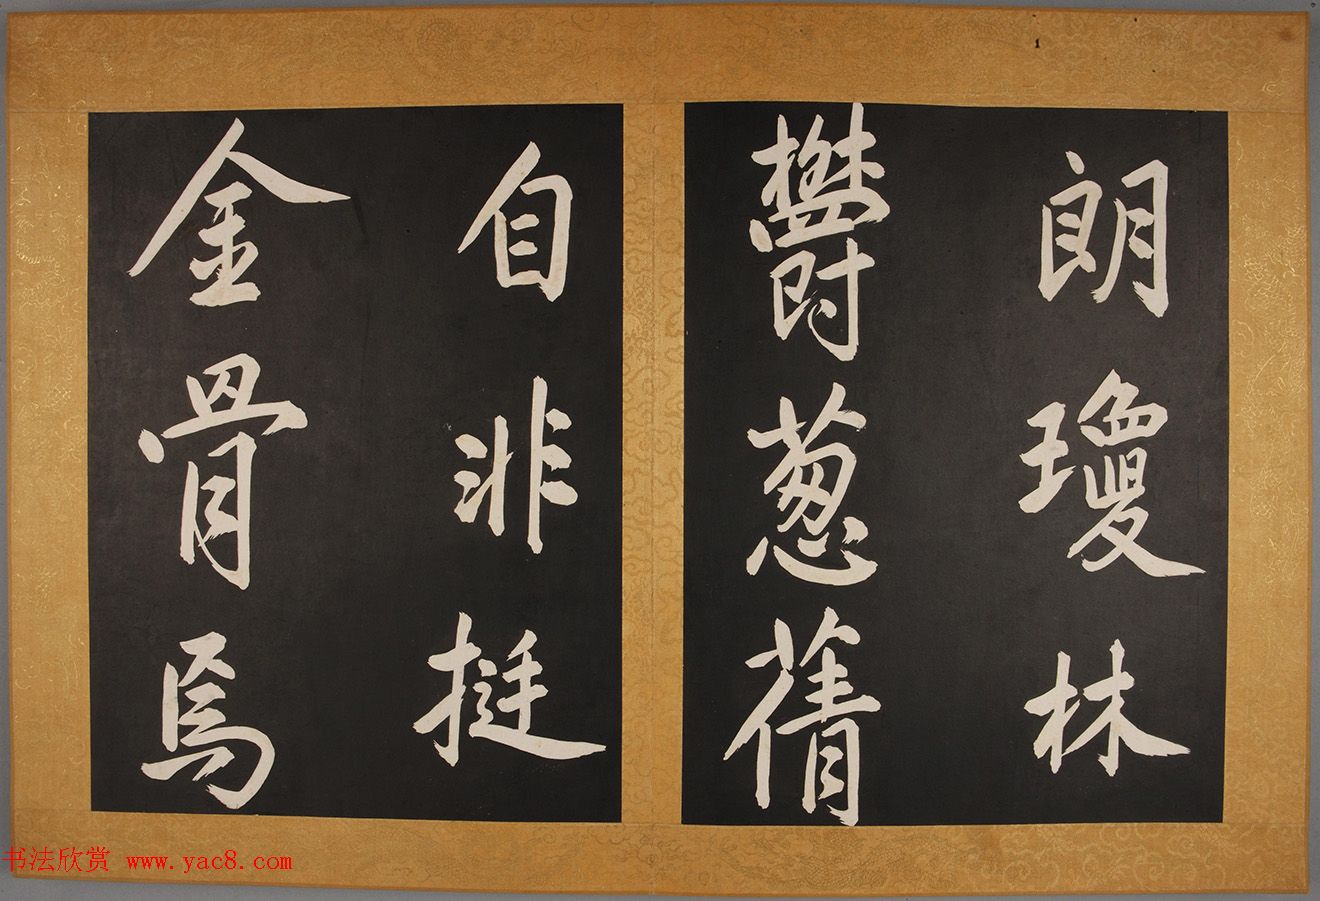 朗瓊林
欝葱蒨
自非挺
金骨焉
书法欣赏 www.yac8.com